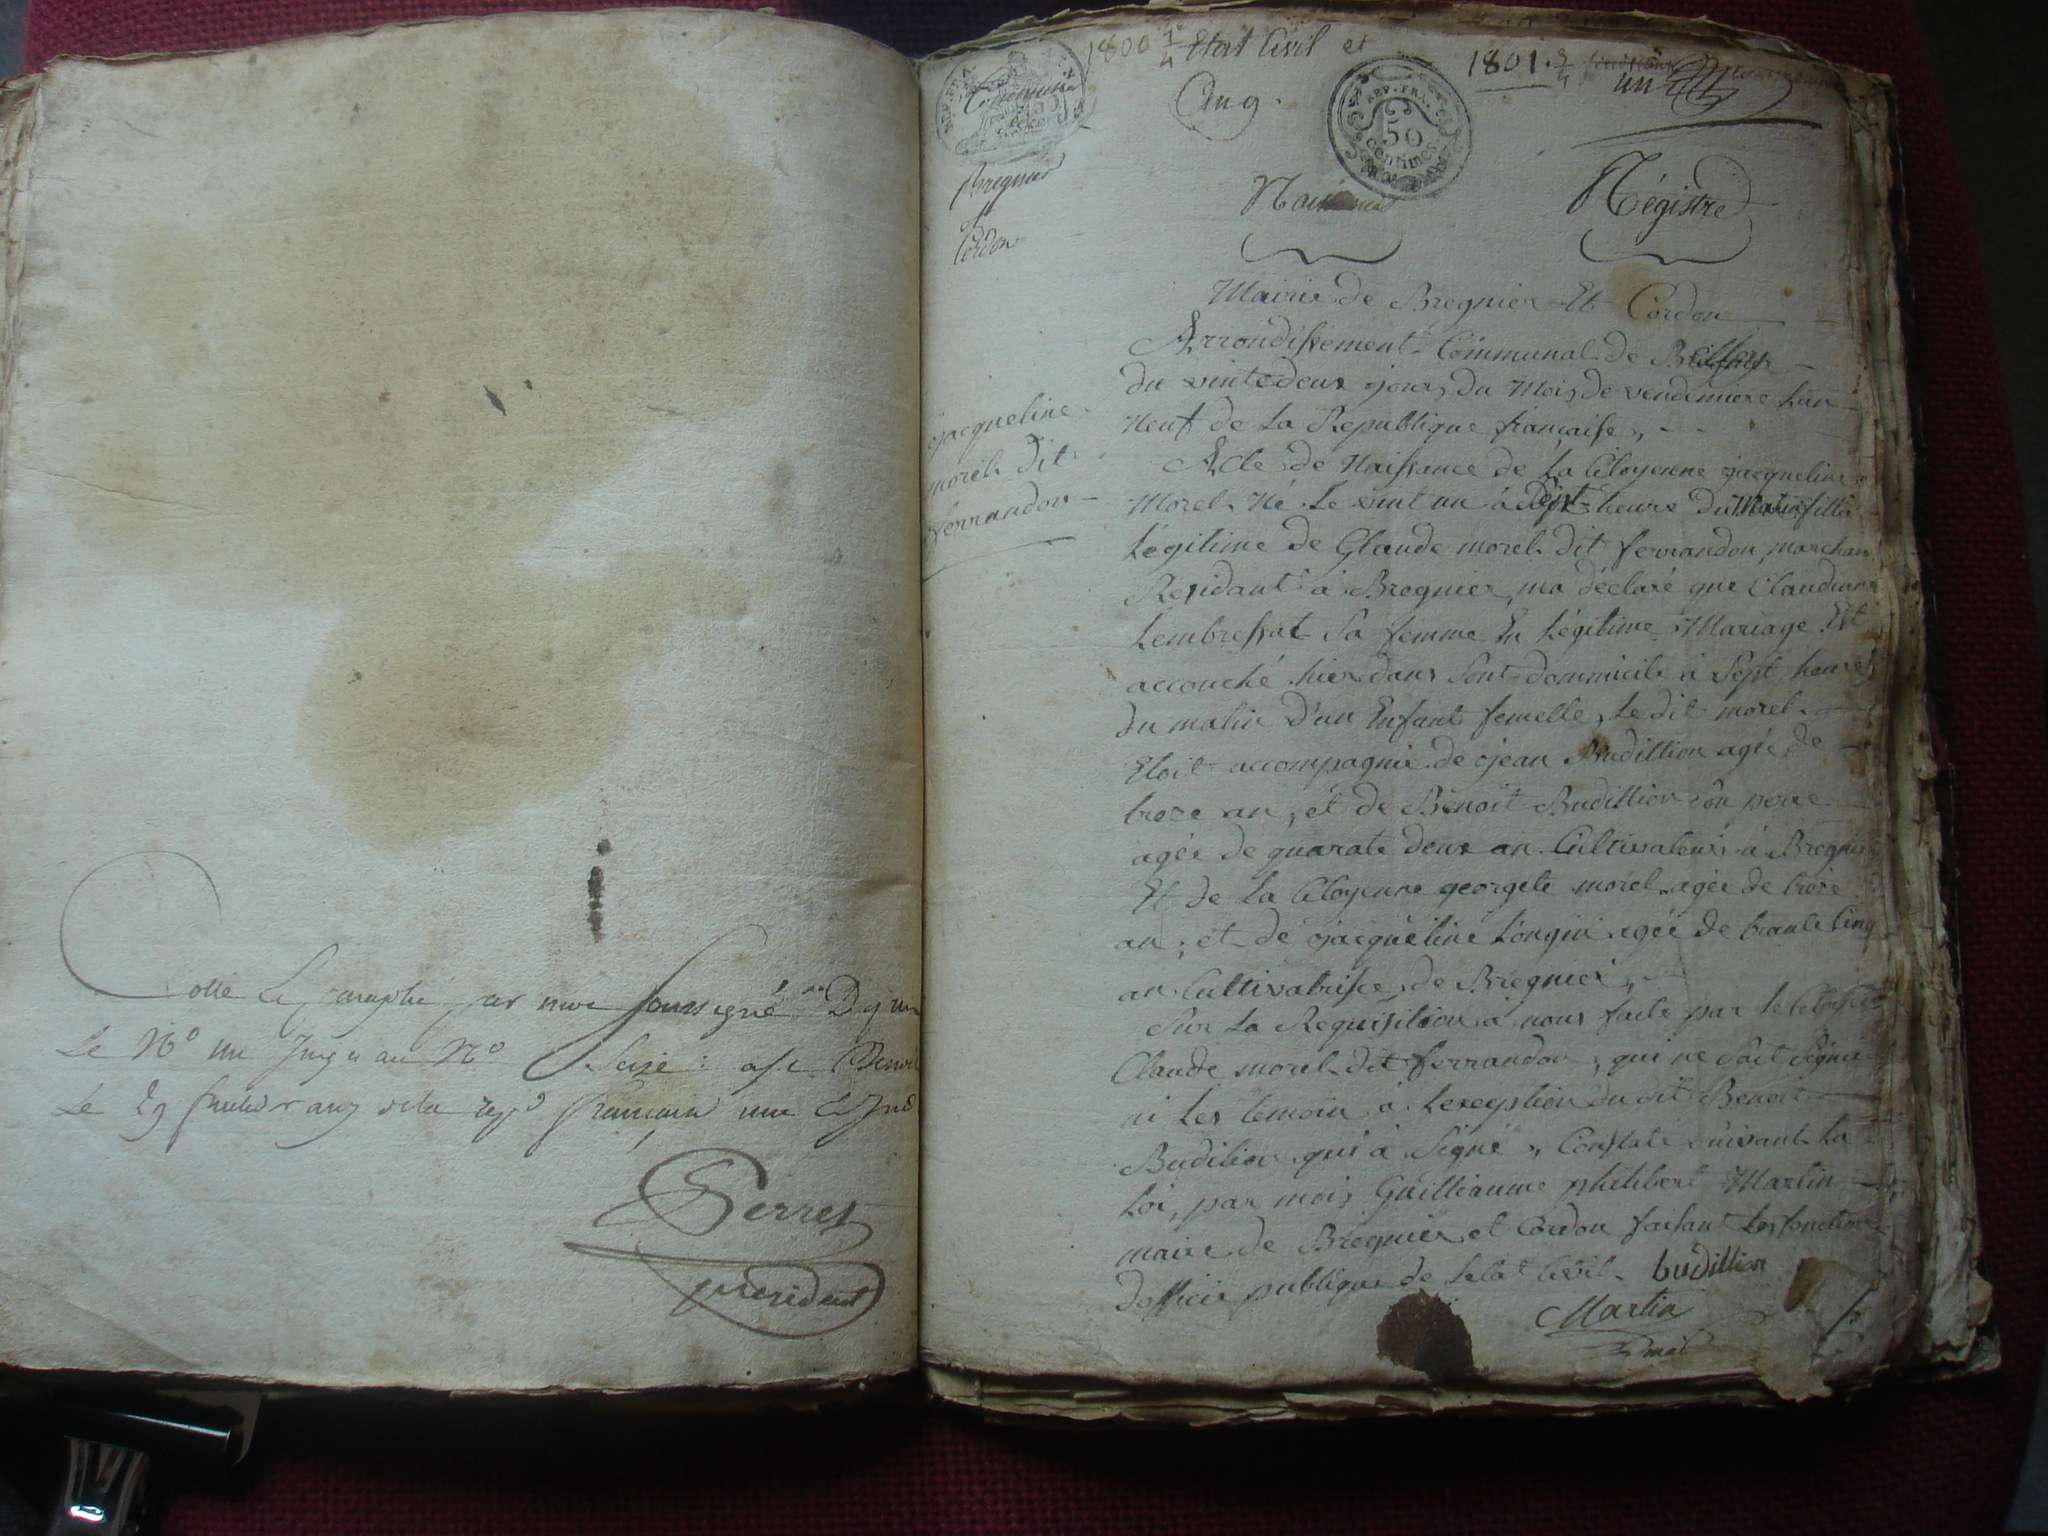 Cotté & paraphé par moi soussigné
Le N° un Jusqu au N° Seize :
Le 29
Perret
président
1800 1/4 Etat Civil et
1801. 3/4
un
An 9.
REP. FRA.
50
centimes
Commune
Bregnier
et
Cordon
Naissance
Régistre
Mairie de Bregnier Et Cordon
Arrondissement Communal de Belley
du vintedeux jours du Mois de vendemiere Lan
Neuf de La Republique francaise,
jacqueline
morel dit
ferrandon
Acte de Naissance de La Citoyenne jacqueline
Morel Né Le vint un à Sept heure Du Matin fille
Légitime de Glaude morel dit ferrandon, marchan
Residant à Bregnier, ma déclaré que Claudine
Lembressat Sa femme En Légitime Mariage Est
accouché hier dans Sont dommicile à Sept heures
du matin D'un Enfant femelle, Le dit morel
Etoit accompagnié de jean Budillion agée de
treze an, et de Benoit Budillion son perre
agée de quarate deux an Cultivateurs à Bregnier
Et de La Citoyenne georgete morel agée de treze
an, et de jacquéline Longin agée de trante Cinq
an Cultivatrisse de Bregnier,
Sur La Requisition à nous faite par le Citoyen
Claude morel dit ferrandon, qui ne Sait Signé
ni Les temoin à Lexeption du dit Benoit
Budilion qui à Signé, Constaté Suivant La
Loi, par mois Guilliaume philibert Martin
maire de Bregnier et Cordon faisant Les fonction
dofficier publique de Letat Civil. budillion
Martin